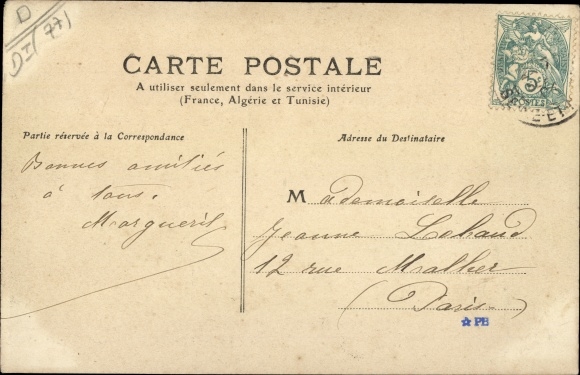 D
DI (77)
CARTE POSTALE
A utiliser seulement dans le service intérieur
(France, Algérie et Tunisie)
Partie réservée à la Correspondance
Adresse du Destinataire
Bonnes amitiés
à tous.
Marguerite
Mademoiselle
Jeanne Lebaud
12 rue Malher
(Paris)
5
POSTES
PB